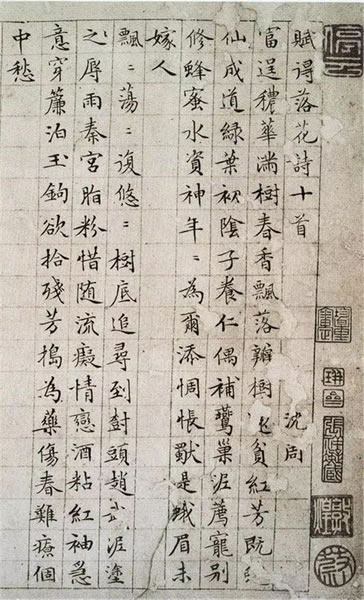 賦得落花詩十首
沈周
富逞穠華滿樹春香飄落瓣樹貧紅芳既
仙成道綠葉初陰子養仁偶補鶯巢泥薦寵別
修蜂蜜水資神年〻為爾添惆悵是蛾眉未
嫁人
飄〻蕩〻復悠〻樹底追尋到樹頭趙武泥塗
之辱雨秦宮脂粉惜随流癡情戀酒粘紅袖急
意穿簾泊玉鉤欲拾殘芳搗為藥傷春難療個
中愁